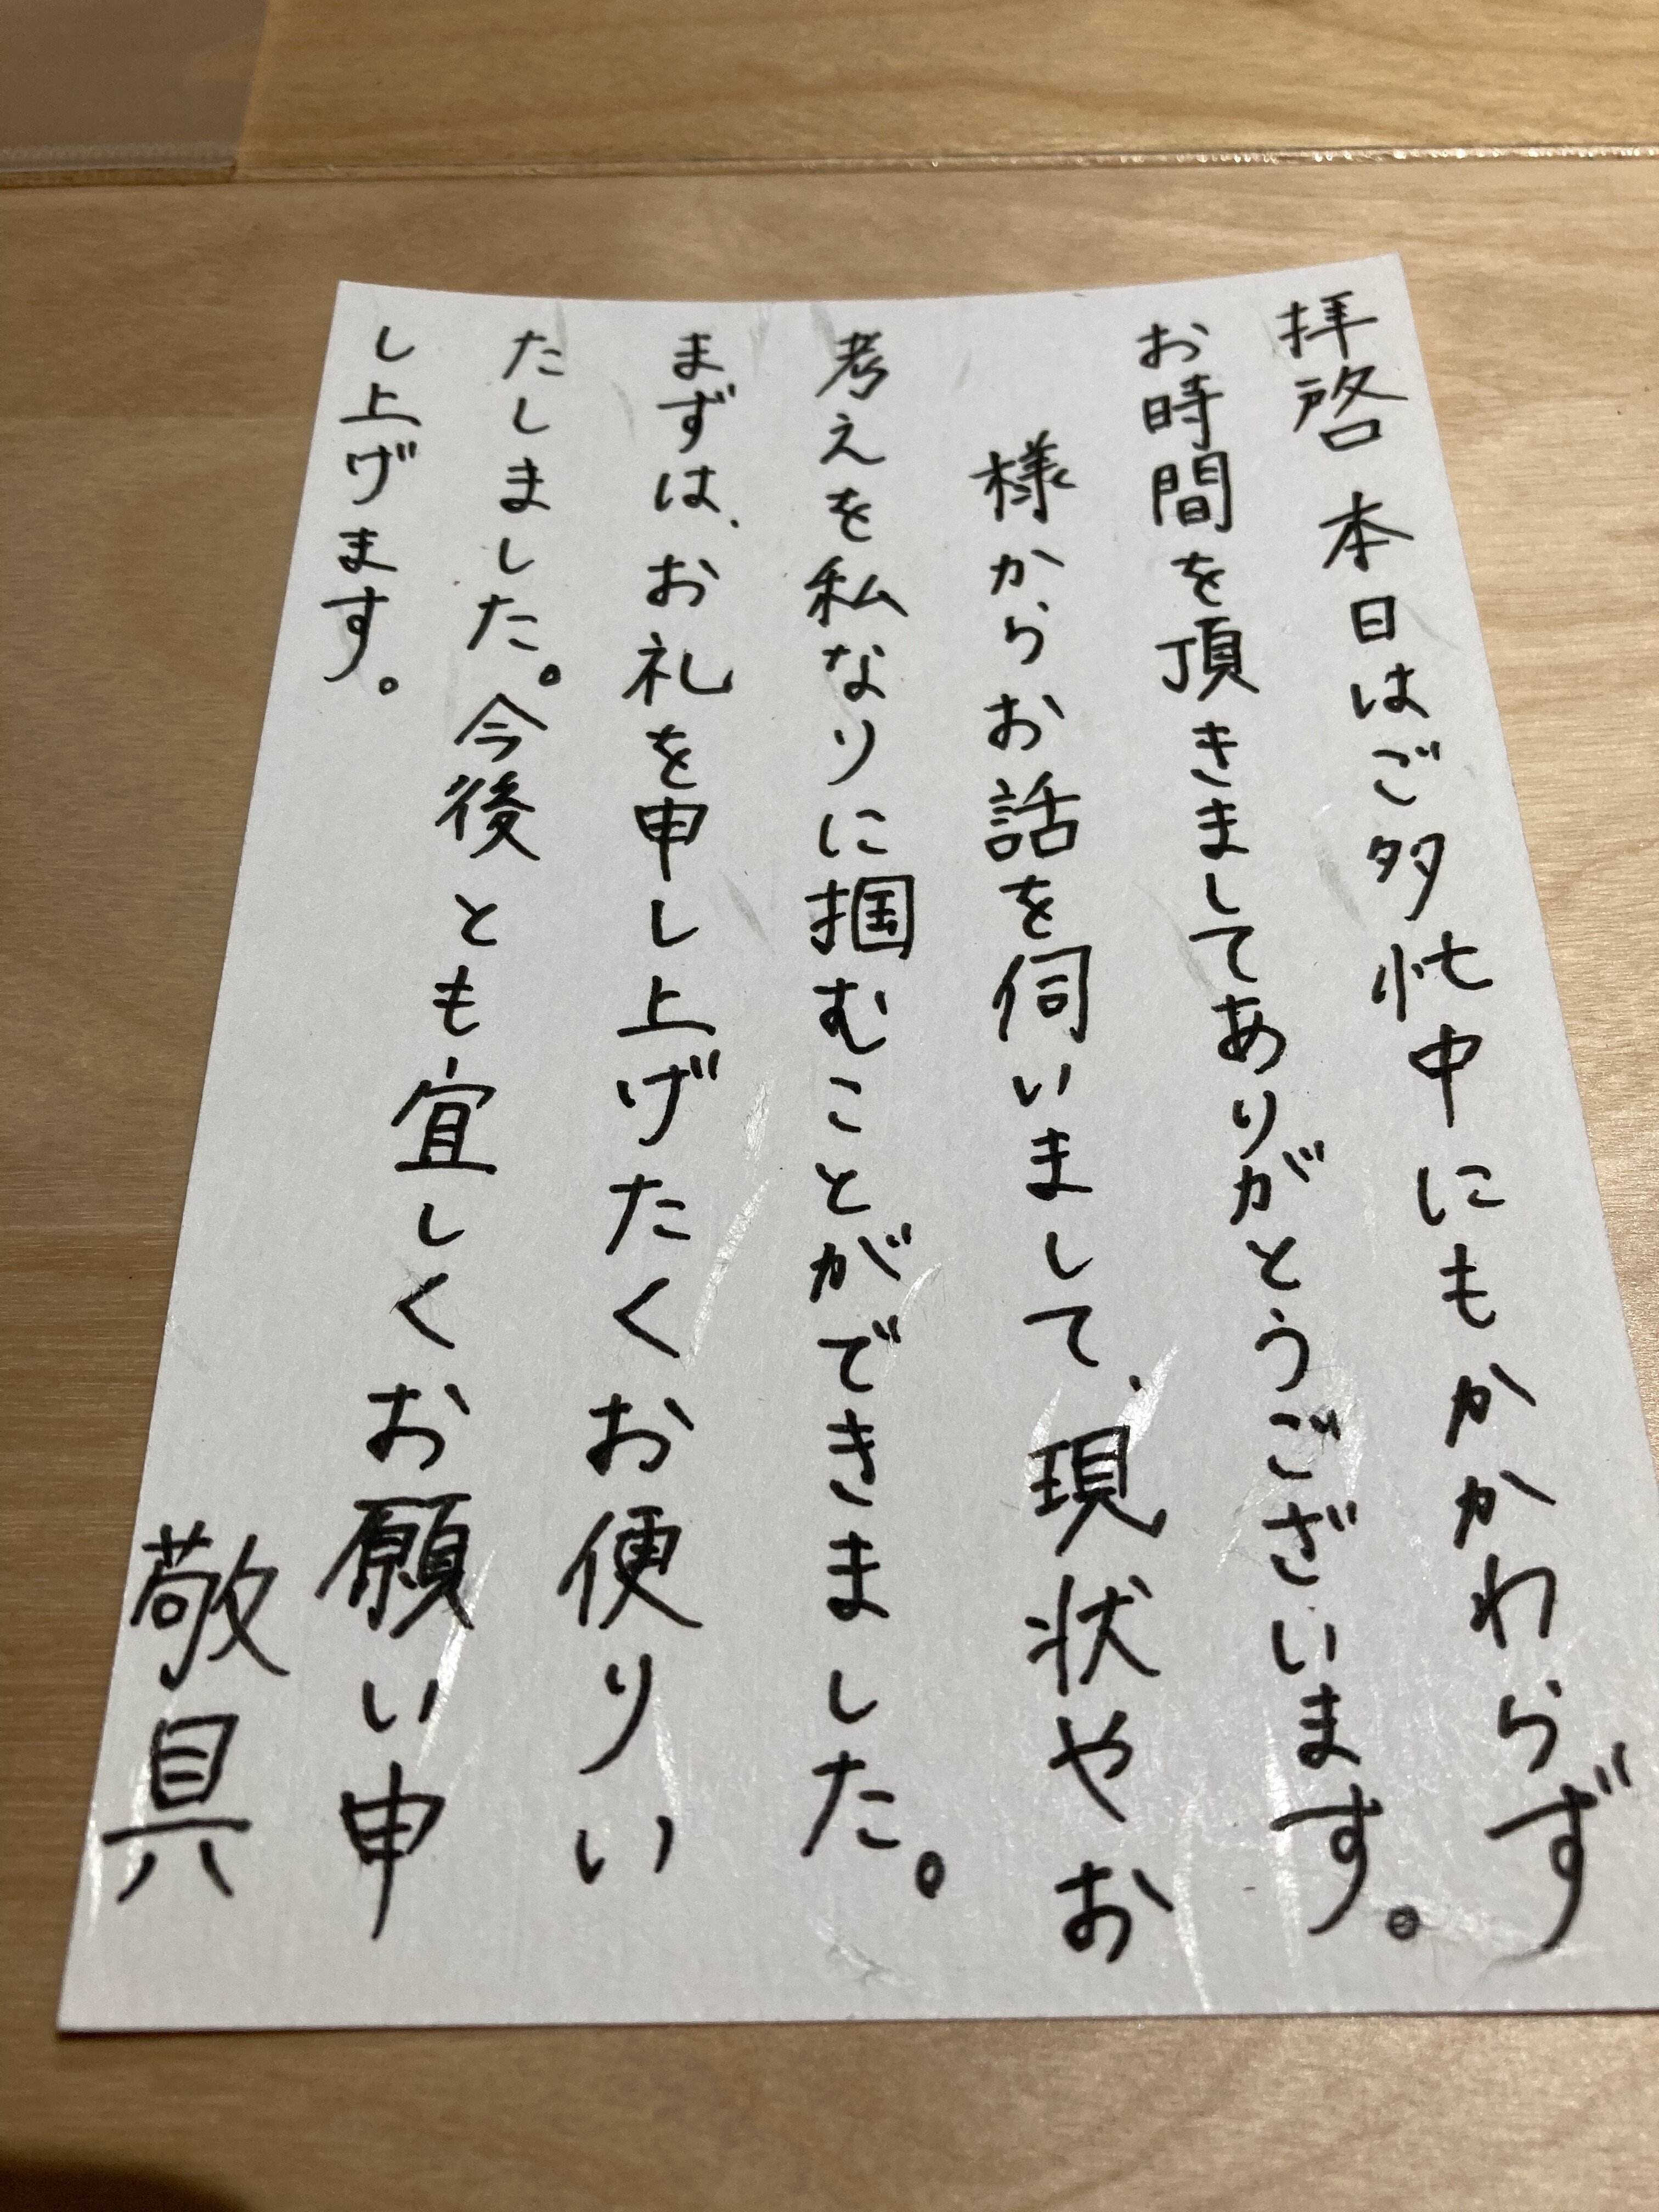 拝啓 本日はご多忙中にもかかわらず
お時間を頂きましてありがとうございます。
様からお話を伺いまして、現状やお
考えを私なりに掴むことができました。
まずは、お礼を申し上げたくお便りい
たしました。今後とも宜しくお願い申
し上げます。
敬具